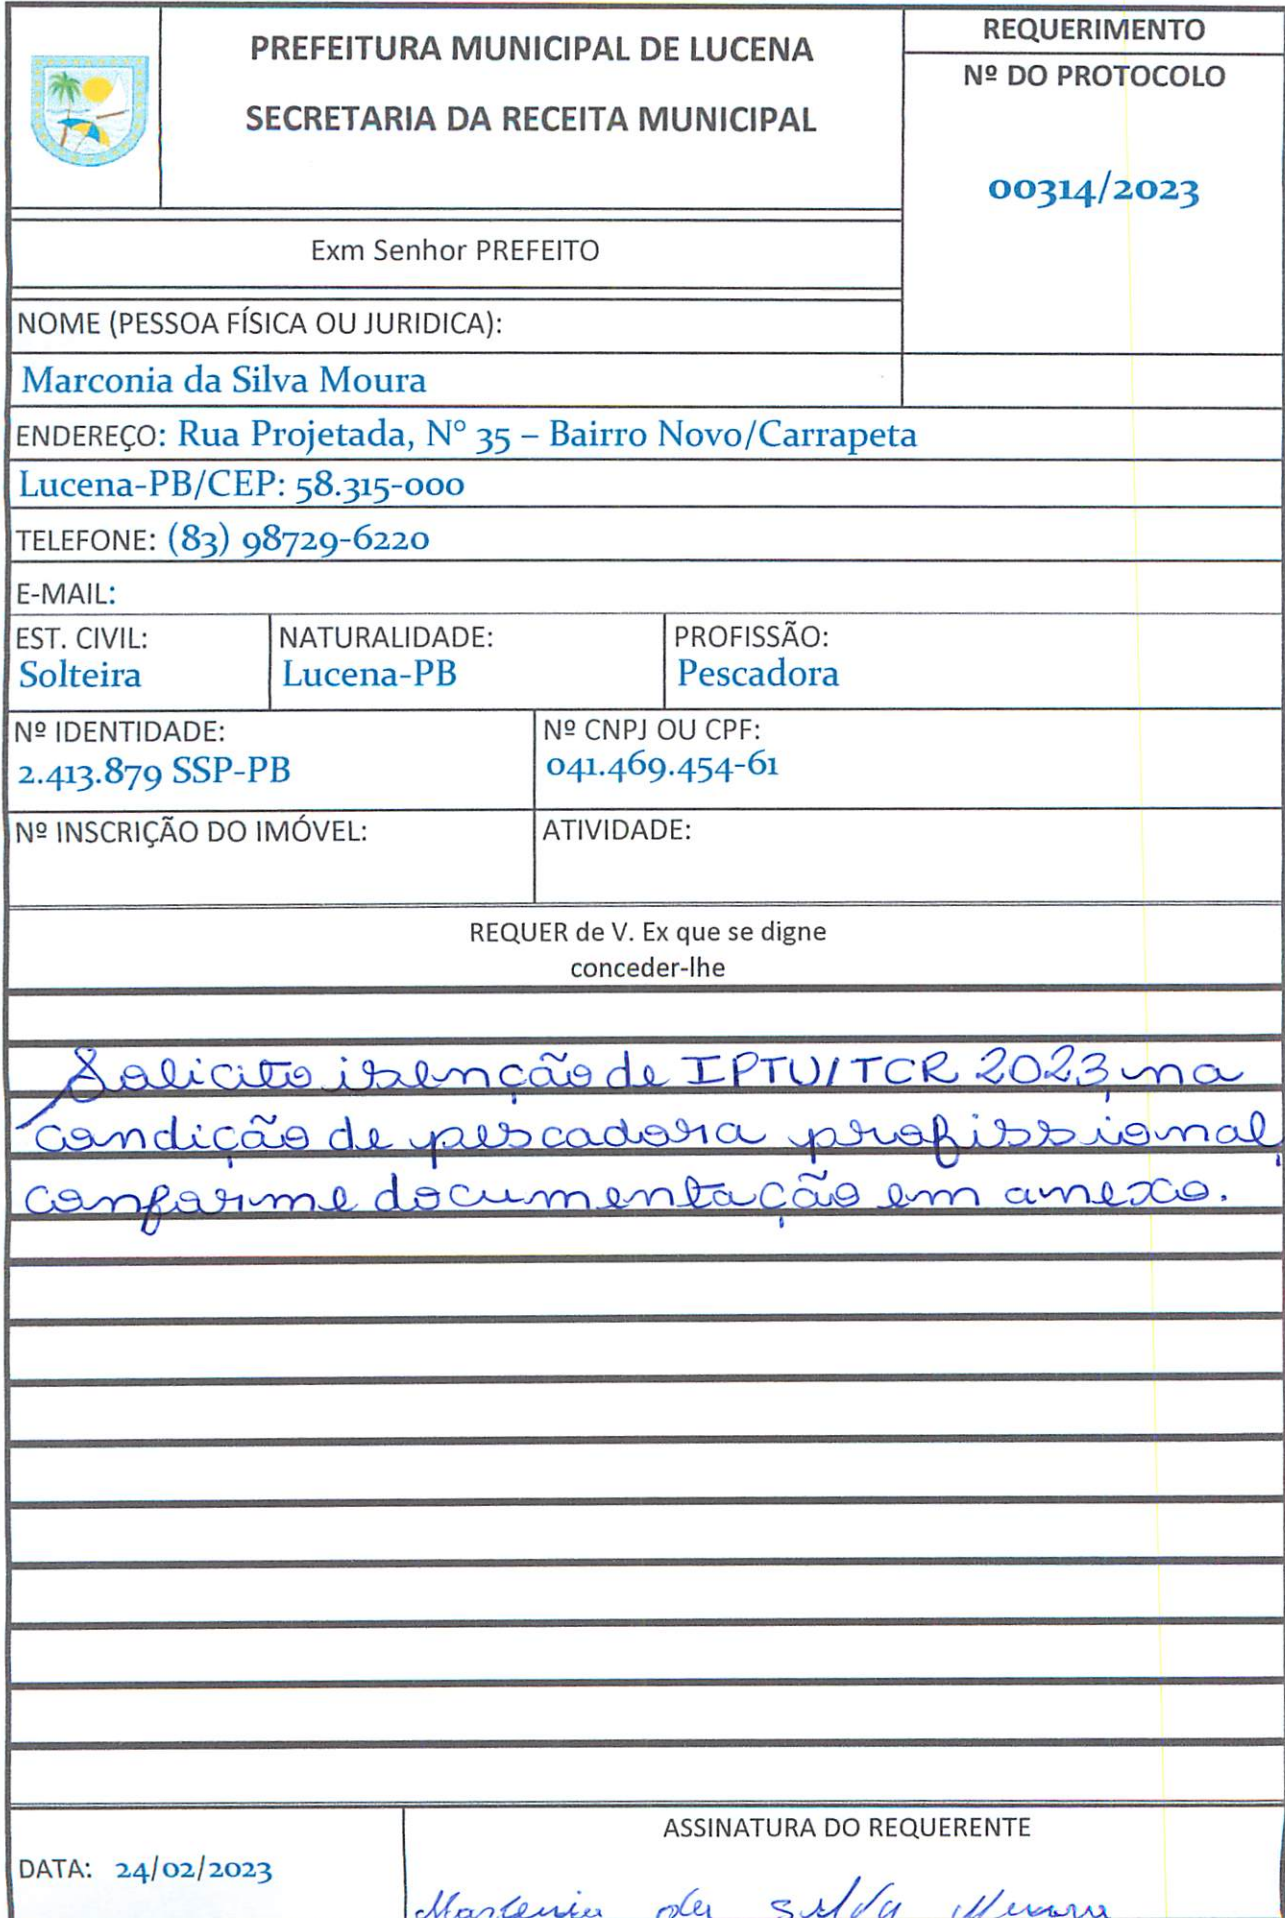 PREFEITURA MUNICIPAL DE LUCENA
SECRETARIA DA RECEITA MUNICIPAL
REQUERIMENTO
Nº DO PROTOCOLO
00314/2023
Exm Senhor PREFEITO
NOME (PESSOA FÍSICA OU JURIDICA):
Marconia da Silva Moura
ENDEREÇO: Rua Projetada, N° 35 – Bairro Novo/Carrapeta
Lucena-PB/CEP: 58.315-000
TELEFONE: (83) 98729-6220
E-MAIL:
EST. CIVIL:
Solteira
NATURALIDADE:
Lucena-PB
PROFISSÃO:
Pescadora
Nº IDENTIDADE:
2.413.879 SSP-PB
Nº CNPJ OU CPF:
041.469.454-61
Nº INSCRIÇÃO DO IMÓVEL:
ATIVIDADE:
REQUER de V. Ex que se digne
conceder-lhe
Solicito isenção de IPTU/TCR 2023, na
condição de pescadora profissional,
conforme documentação em anexo.
DATA: 24/02/2023
ASSINATURA DO REQUERENTE
da Silva